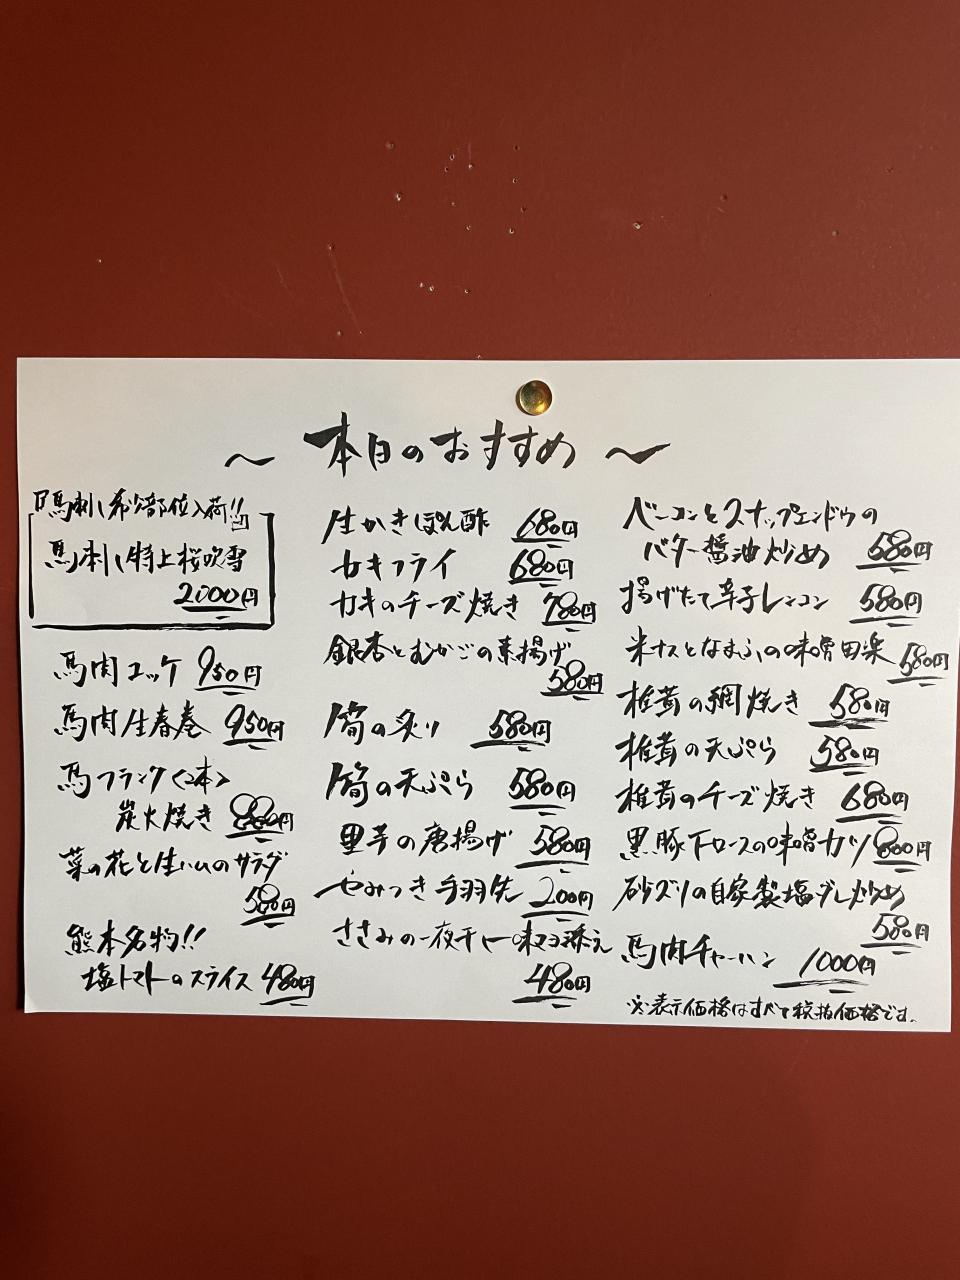 〜 本日のおすすめ 〜
馬刺し希少部位入荷!!
馬刺し特上桜吹雪
2000円
馬肉ユッケ 950円
馬肉生春巻 950円
馬フランク<2本>
炭火焼き 880円
菜の花と生ハムのサラダ
580円
熊本名物!!
塩トマトのスライス 480円
生かきぽん酢 680円
カキフライ 680円
カキのチーズ焼き 780円
銀杏とむかごの素揚げ
580円
筍の炙り 580円
筍の天ぷら 580円
里芋の唐揚げ 580円
やみつき手羽先 200円
ささみの一夜干し 味マヨ添え
480円
ベーコンとスナップエンドウの
バター醤油炒め 580円
揚げたて辛子レンコン 580円
米ナスとなまふの味噌田楽 580円
椎茸の網焼き 580円
椎茸の天ぷら 580円
椎茸のチーズ焼き 680円
黒豚下ロースの味噌カツ 800円
砂ズリの自家製塩ダレ炒め
580円
馬肉チャーハン 1000円
※表示価格はすべて税抜価格です。